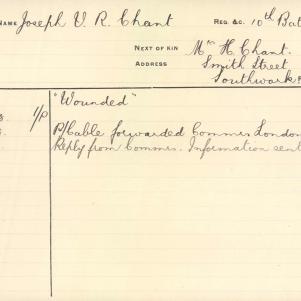 NAME Joseph V. R. Chant REG. &C. 10th Bat
NEXT OF KIN Mrs H. Chant.
ADDRESS Smith Street
Southwark
1/P "Wounded"
P/Cable forwarded Commrs London
Reply from Commrs. Information sent